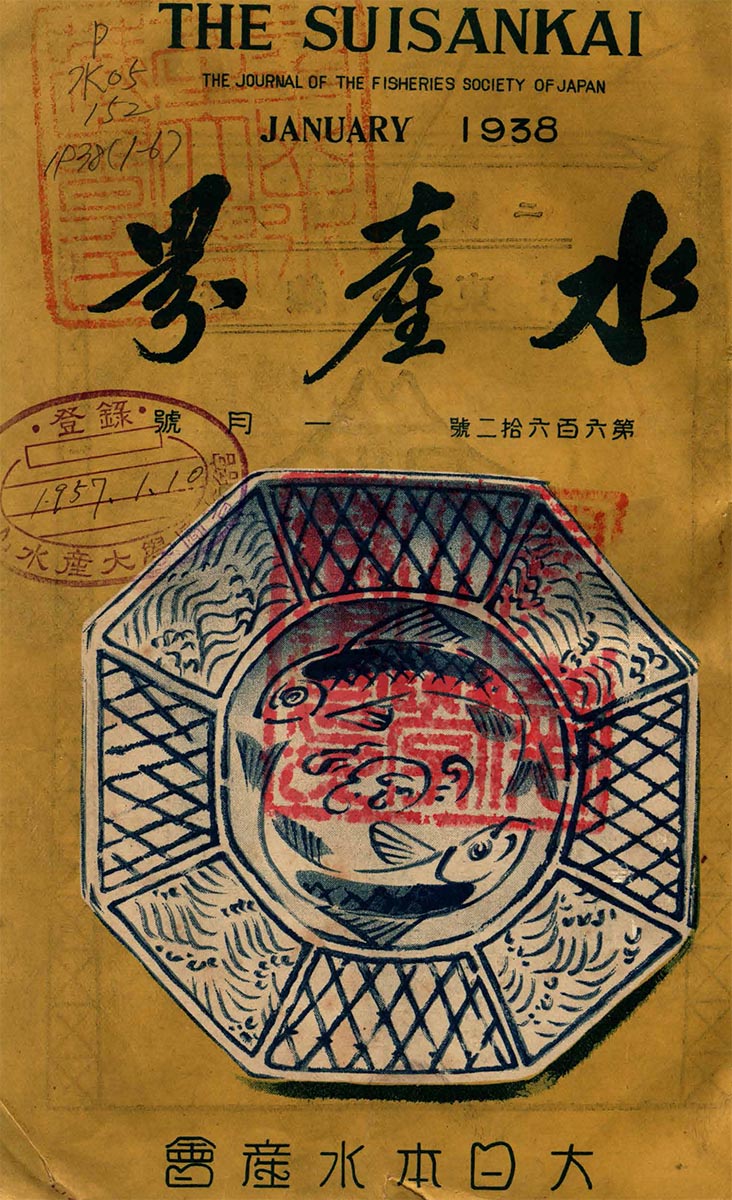 THE SUISANKAI
THE JOURNAL OF THE FISHERIES SOCIETY OF JAPAN
JANUARY 1938
P
水05
152
1938(1-6)
水産界
第六百六拾二號 一月號
登錄
1957.1.10
水產大學
大日本水産會